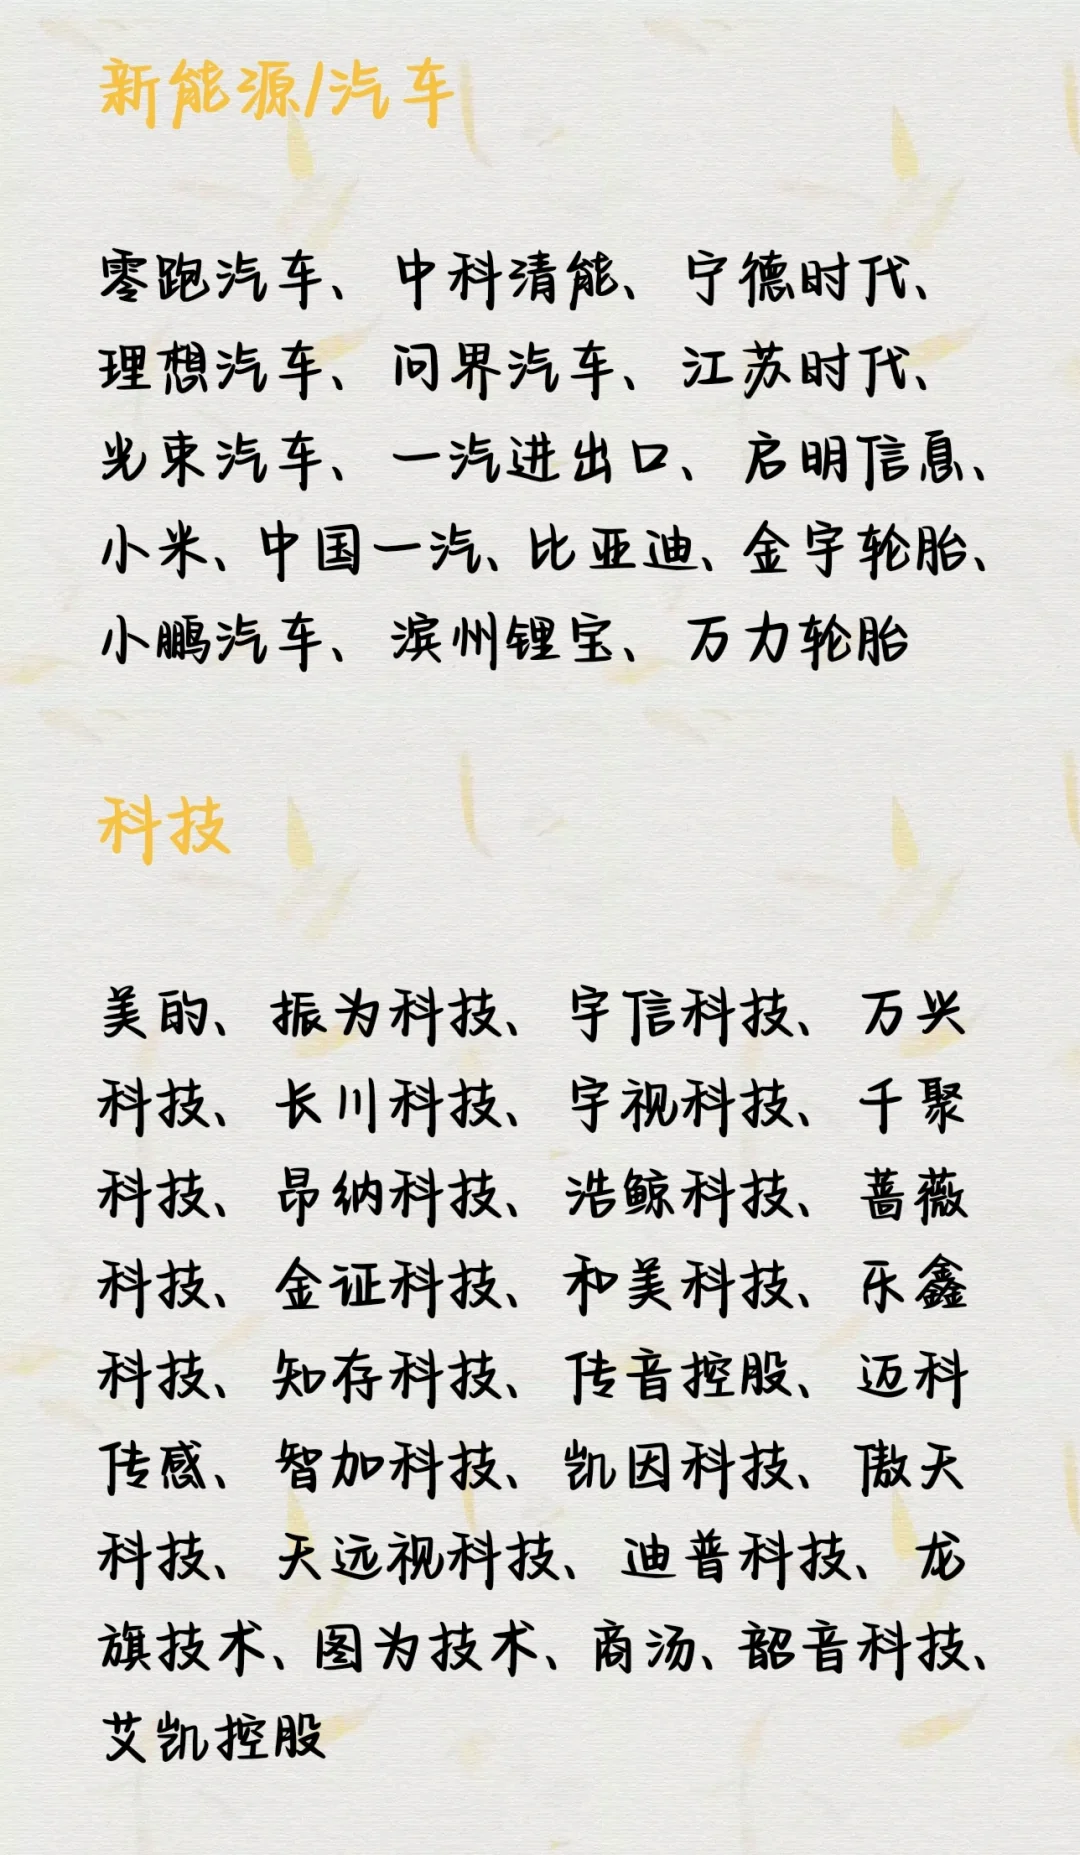 新能源/汽车
零跑汽车、中科清能、宁德时代、
理想汽车、问界汽车、江苏时代、
光束汽车、一汽进出口、启明信息、
小米、中国一汽、比亚迪、金宇轮胎、
小鹏汽车、滨州锂宝、万力轮胎
科技
美的、振为科技、宇信科技、万兴
科技、长川科技、宇视科技、千聚
科技、昂纳科技、浩鲸科技、蔷薇
科技、金证科技、和美科技、乐鑫
科技、知存科技、传音控股、迈科
传感、智加科技、凯因科技、傲天
科技、天远视科技、迪普科技、龙
旗技术、图为技术、商汤、韶音科技、
艾凯控股